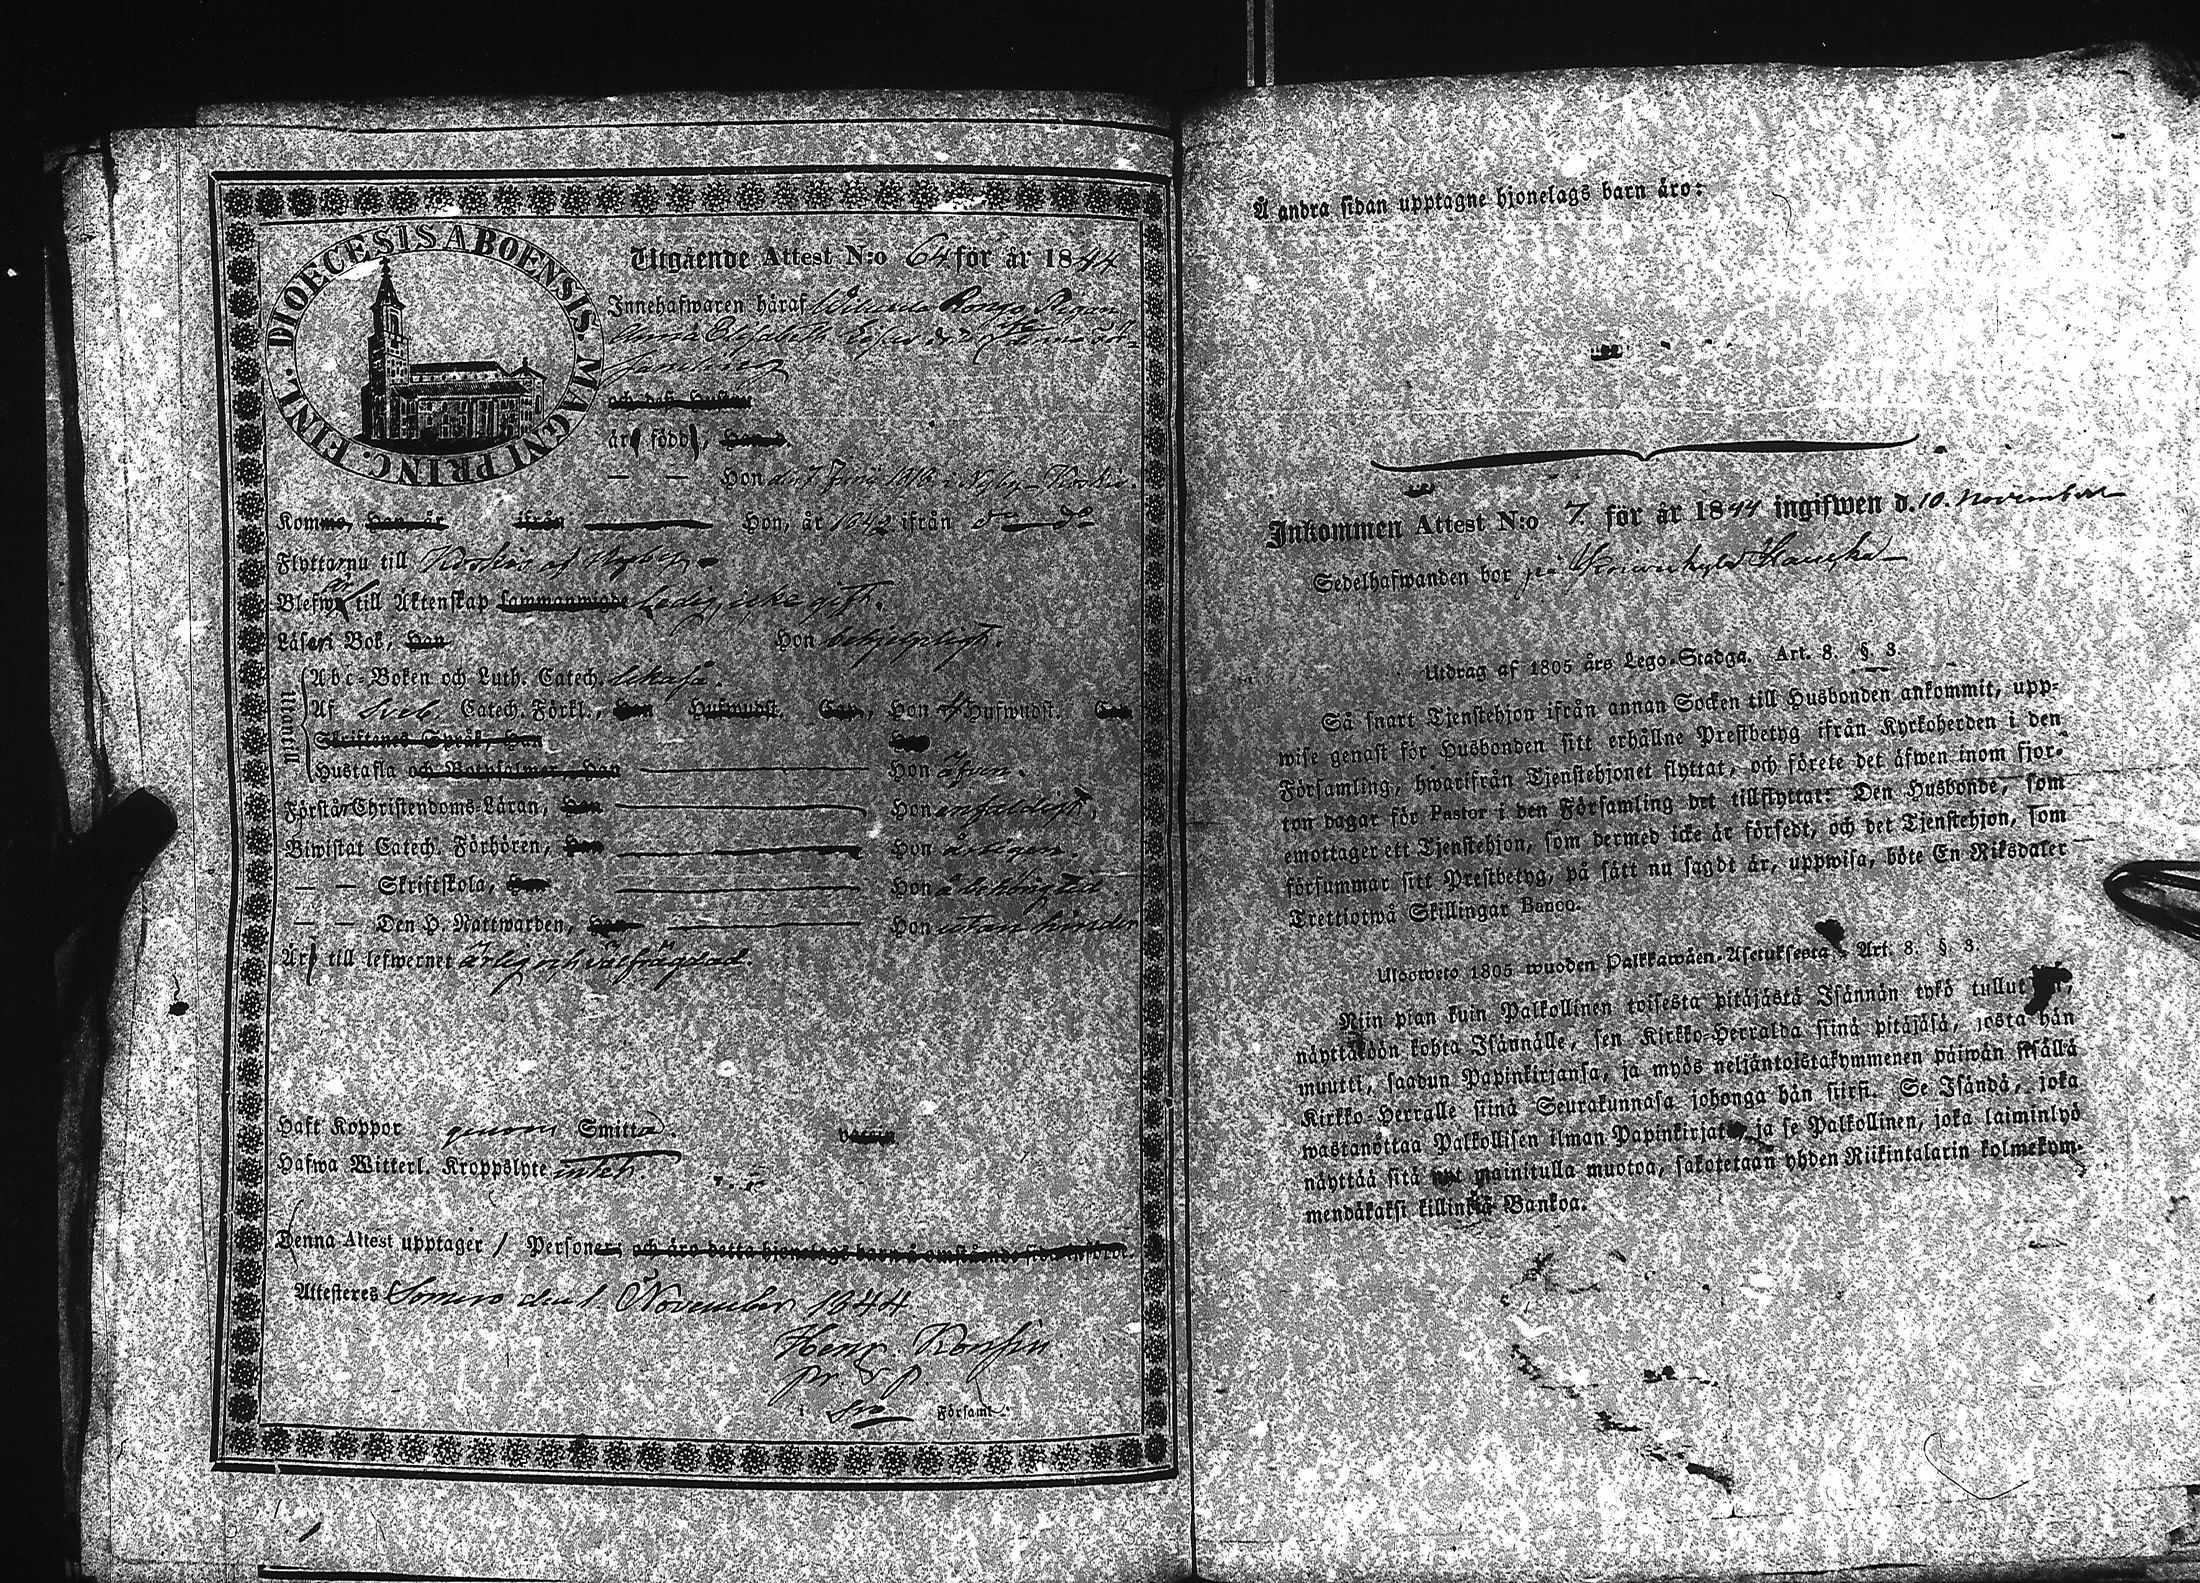 DIOECESIS ABOENSIS. MAGNI PRINC. FINL.
Utgående Attest N:o 64 för år 1844
Innehafwaren häraf Pigan
Anna Elisabeth
och dess Hustru
är född,
— — Hon den 7 Junii 1818 i Nyby-Koskis
Komme, Han år ifrån Hon, år 1842 ifrån do
Flyttar nu till Koskis af Nyby
Blefwe till Äktenskap sammanwigde Ledig, icke gift.
Läser i Bok, Han Hon behjelpligt.
Utantill
Abc-Boken och Luth. Catech. likaså.
Af Sveb. Catech. Förkl., Han Hufwudst. Cap, Hon 4 Hufwudst. Cap
Skriftenes Språk, Han Hon
Hustafla och Botpsalmer, Han Hon äfven.
Förstår Christendoms-Läran, Han Hon enfaldigt,
Biwistat Catech. Förhören, Han Hon årligen.
— — Skriftskola, Han Hon å behörig tid.
— — Den H. Nattwarden, Han Hon utan hinder
Är till lefwernet ärlig och välfrägdad.
Haft Koppor genom Smitta. Vaccin.
Hafwa Witterl. Kroppslyte intet.
Denna Attest upptager 1 Personer, och äro detta hjonelags barn å omstående sida införde.
Attesteres Somero den 1 November 1844
Henr.
i Församl.
Å andra sidan upptagne hjonelags barn äro:
Inkommen Attest N:o 7. för år 1844 ingifwen d. 10. November
Sedelhafwanden bor på
Utdrag af 1805 års Lego-Stadga. Art. 8. §. 3.
Så snart Tjenstehjon ifrån annan Socken till Husbonden ankommit, upp-
wise genast för Husbonden sitt erhållne Prestbetyg ifrån Kyrkoherden i den
Församling, hwarifrån Tjenstehjonet flyttat, och förete det äfwen inom fjor-
ton dagar för Pastor i den Församling det tillflyttat. Den Husbonde, som
emottager ett Tjenstehjon, som dermed icke är försedt, och det Tjenstehjon, som
försummar sitt Prestbetyg, på sätt nu sagdt är, uppwisa, böte En Riksdaler
Trettiotwå Skillingar Banco.
Ulosweto 1805 wuoden Palkkawäen-Asetuksesta Art. 8. §. 3.
Niin pian kuin Palkollinen toisesta pitäjästä Isännän tykö tullut
näyttäköön kohta Isännälle, sen Kirkko-Herralda siinä pitäjäsä, josta hän
muutti, saadun Papinkirjansa, ja myös neljäntoistakymmenen päiwän sisällä
Kirkko-Herralle siinä Seurakunnasa johonga hän siirsi. Se Isändä, joka
wastanottaa Palkollisen ilman Papinkirjata ja se Palkollinen, joka laiminlyö
näyttää sitä nyt mainitulla muotoa, sakotetaan yhden Riikintalarin kolmekym-
mendäkaksi killinkiä Bankoa.